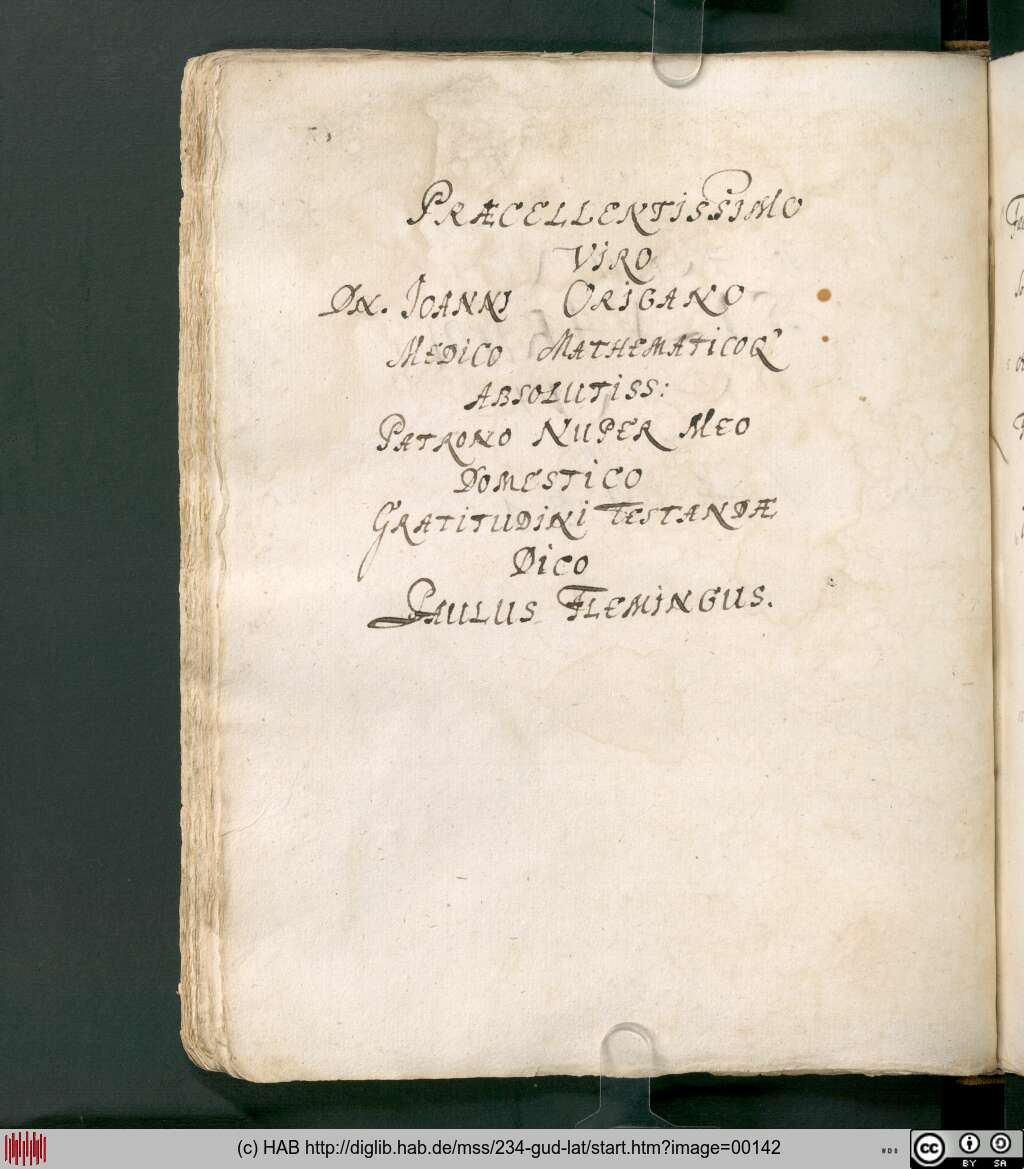 PRÆCELLENTISSIMO
VIRO
DN. IOANNI ORIGANO
MEDICO MATHEMATICOQ'
ABSOLUTISS:
PATRONO NUPER MEO
DOMESTICO
GRATITUDINI TESTANDÆ
DICO
PAULUS FLEMINGUS.
(c) HAB http://diglib.hab.de/mss/234-gud-lat/start.htm?image=00142
WDB
cc BY SA